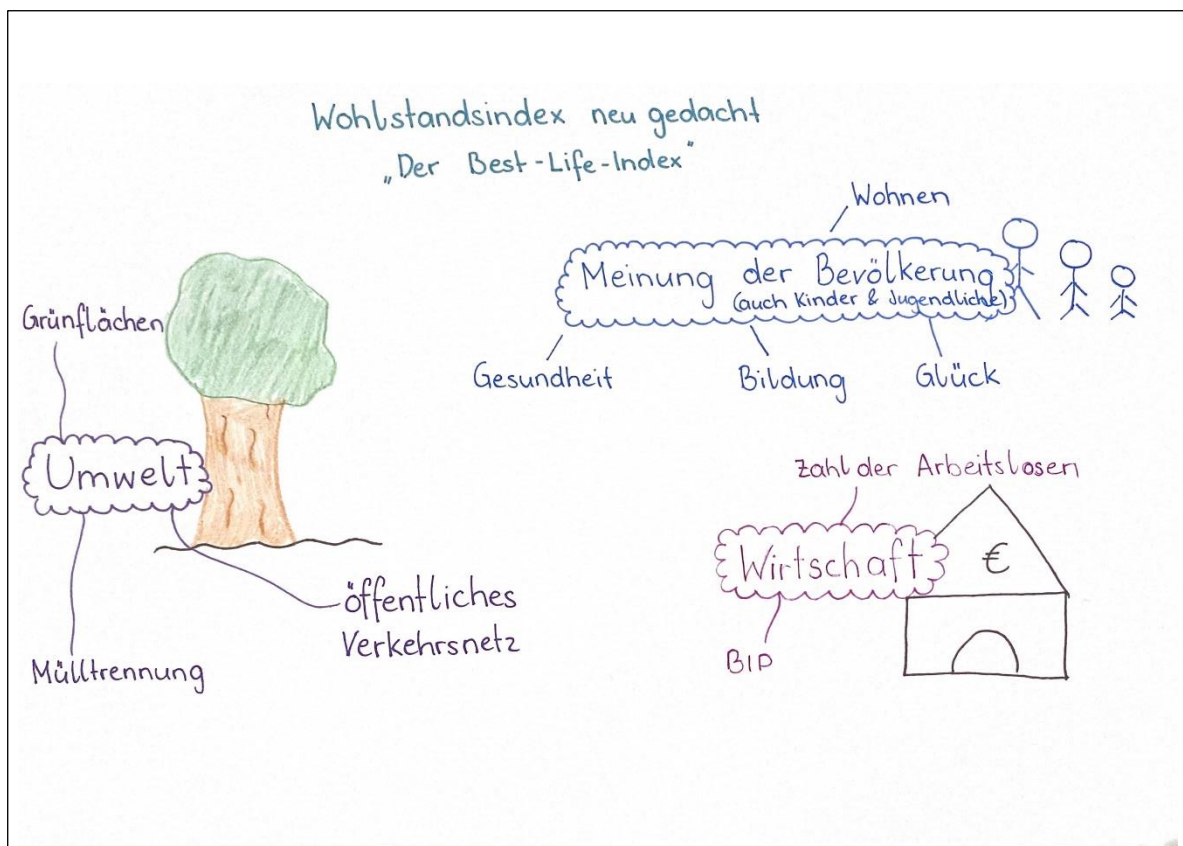 Wohlstandsindex neu gedacht
„Der Best-Life-Index"
Wohnen
Meinung der Bevölkerung
(auch Kinder & Jugendliche)
Gesundheit
Bildung
Glück
Grünflächen
Umwelt
Mülltrennung
öffentliches
Verkehrsnetz
Zahl der Arbeitslosen
Wirtschaft
€
BIP